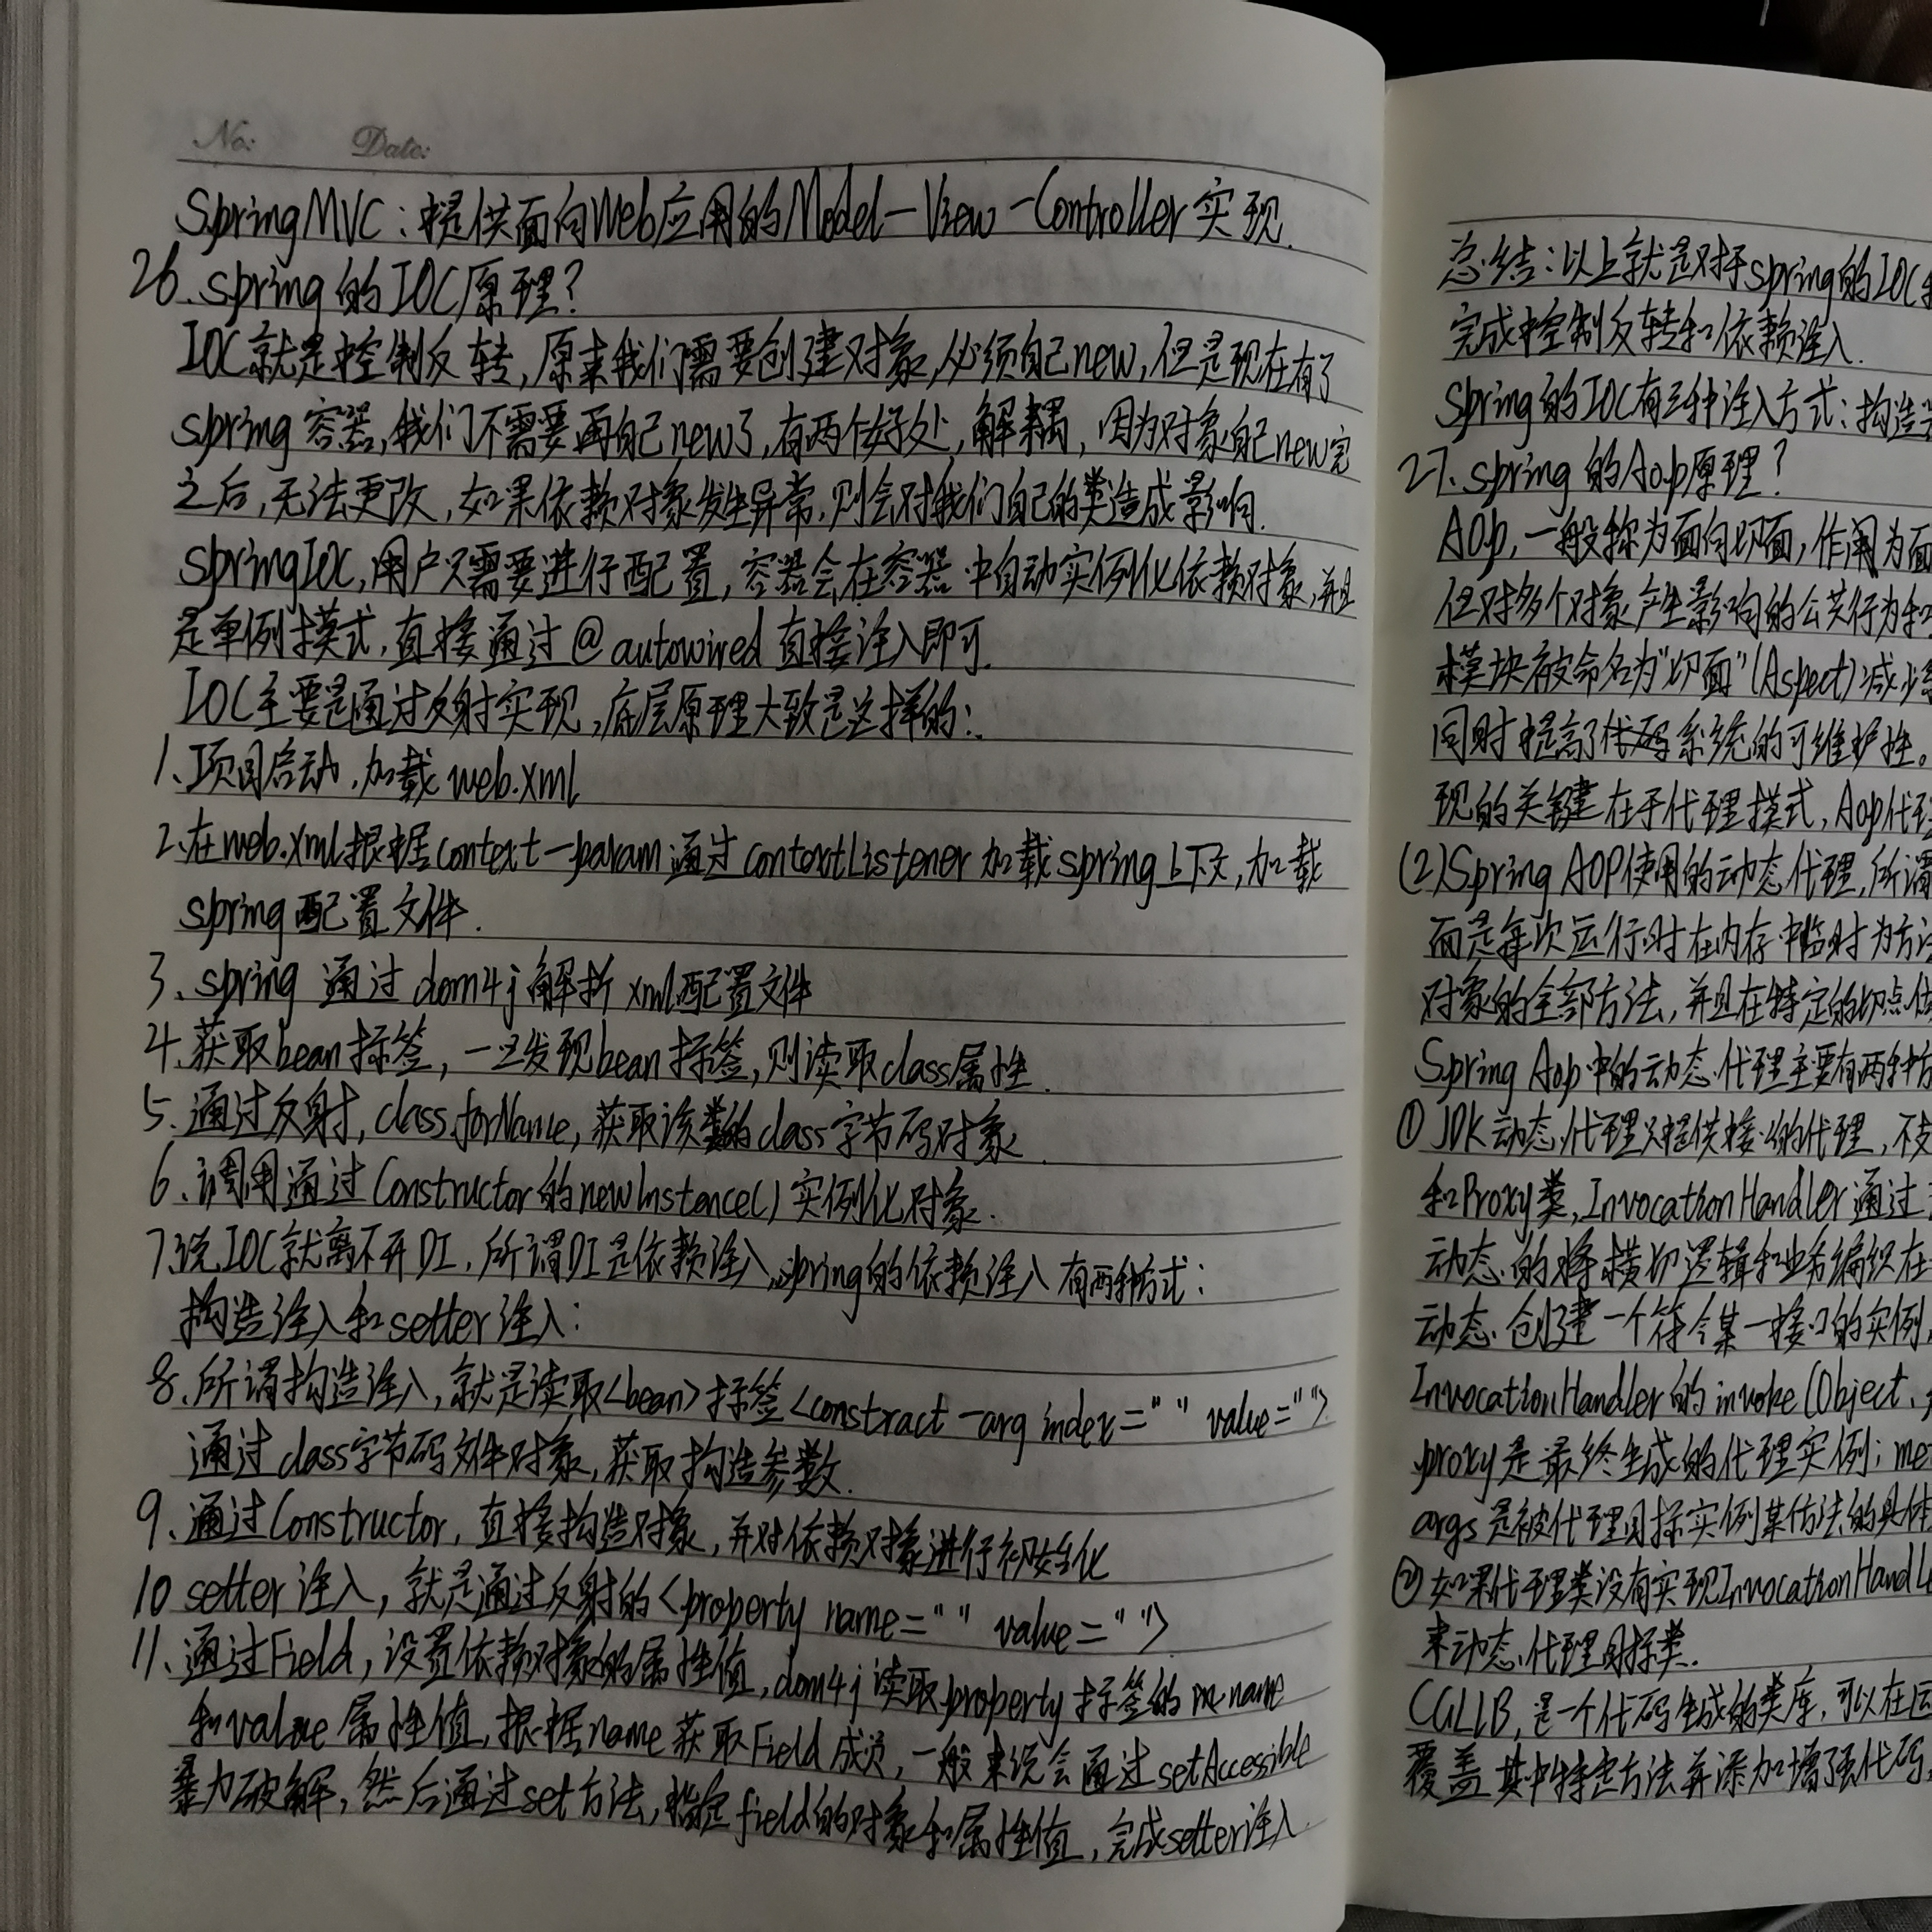 No: Date:
SpringMVC：提供面向Web应用的Model-View-Controller实现.
26.spring的IOC原理?
IOC就是控制反转,原来我们需要创建对象,必须自己new,但是现在有了
spring容器,我们不需要再自己new了,有两个好处,解耦,因为对象自己new完
之后,无法更改,如果依赖对象发生异常,则会对我们自己的类造成影响.
SpringIoc,用户只需要进行配置,容器会在容器中自动实例化依赖对象,并且
是单例模式,直接通过@autowired直接注入即可.
IOC主要是通过反射实现,底层原理大致是这样的:
1、项目启动,加载web.xml
2.在web.xml根据context-param通过contextListener加载spring上下文,加载
spring配置文件.
3、spring通过dom4j解析xml配置文件
4.获取bean标签,一旦发现bean标签,则读取class属性.
5.通过反射,class.forName,获取该类的class字节码对象.
6、调用通过Constructor的newInstence()实例化对象.
7.说IOC就离不开DI,所谓DI是依赖注入,spring的依赖注入有两种方式:
构造注入和setter注入:
8.所谓构造注入,就是读取<bean>标签<constract-arg index=" " value="">
通过class字节码文件对象,获取构造参数.
9、通过Constructor,直接构造对象,并对依赖对象进行初始化
10 setter注入,就是通过反射的<property name=" " value=" ">
11、通过Field,设置依赖对象的属性值,dom4j读取property标签的name
和value属性值,根据name获取Field成员,一般来说会通过setAccessible
暴力破解,然后通过set方法,指定field的对象和属性值,完成setter注入.
总结:以上就是对于spring的IOC
完成控制反转和依赖注入.
Spring的IOC有三种注入方式:构造
27.spring的Aop原理?
AOp,一般称为面向切面,作用为面
但对多个对象产生影响的公共行为和
模块被命名为"切面"(Aspect)减少
同时提高了系统的可维护性。
现的关键在于代理模式,Aop代理
(2)Spring AOP使用的动态代理,所谓
而是每次运行时在内存中临时为方法
对象的全部方法,并且在特定的切点做
Spring Aop中的动态代理主要有两种方
① JDK动态代理只提供接口的代理,不支
和Proxy类,InvocationHandler通过
动态的将横切逻辑和业务编织在
动态创建一个符合某一接口的实例,
InvocationHandler的invoke(Object,
proxy是最终生成的代理实例;me
args是被代理目标实例某个方法的具体
②如果代理类没有实现InvocationHandle
来动态代理目标类.
CGLLB,是一个代码生成的类库,可以在运
覆盖其中特定方法并添加增强代码,